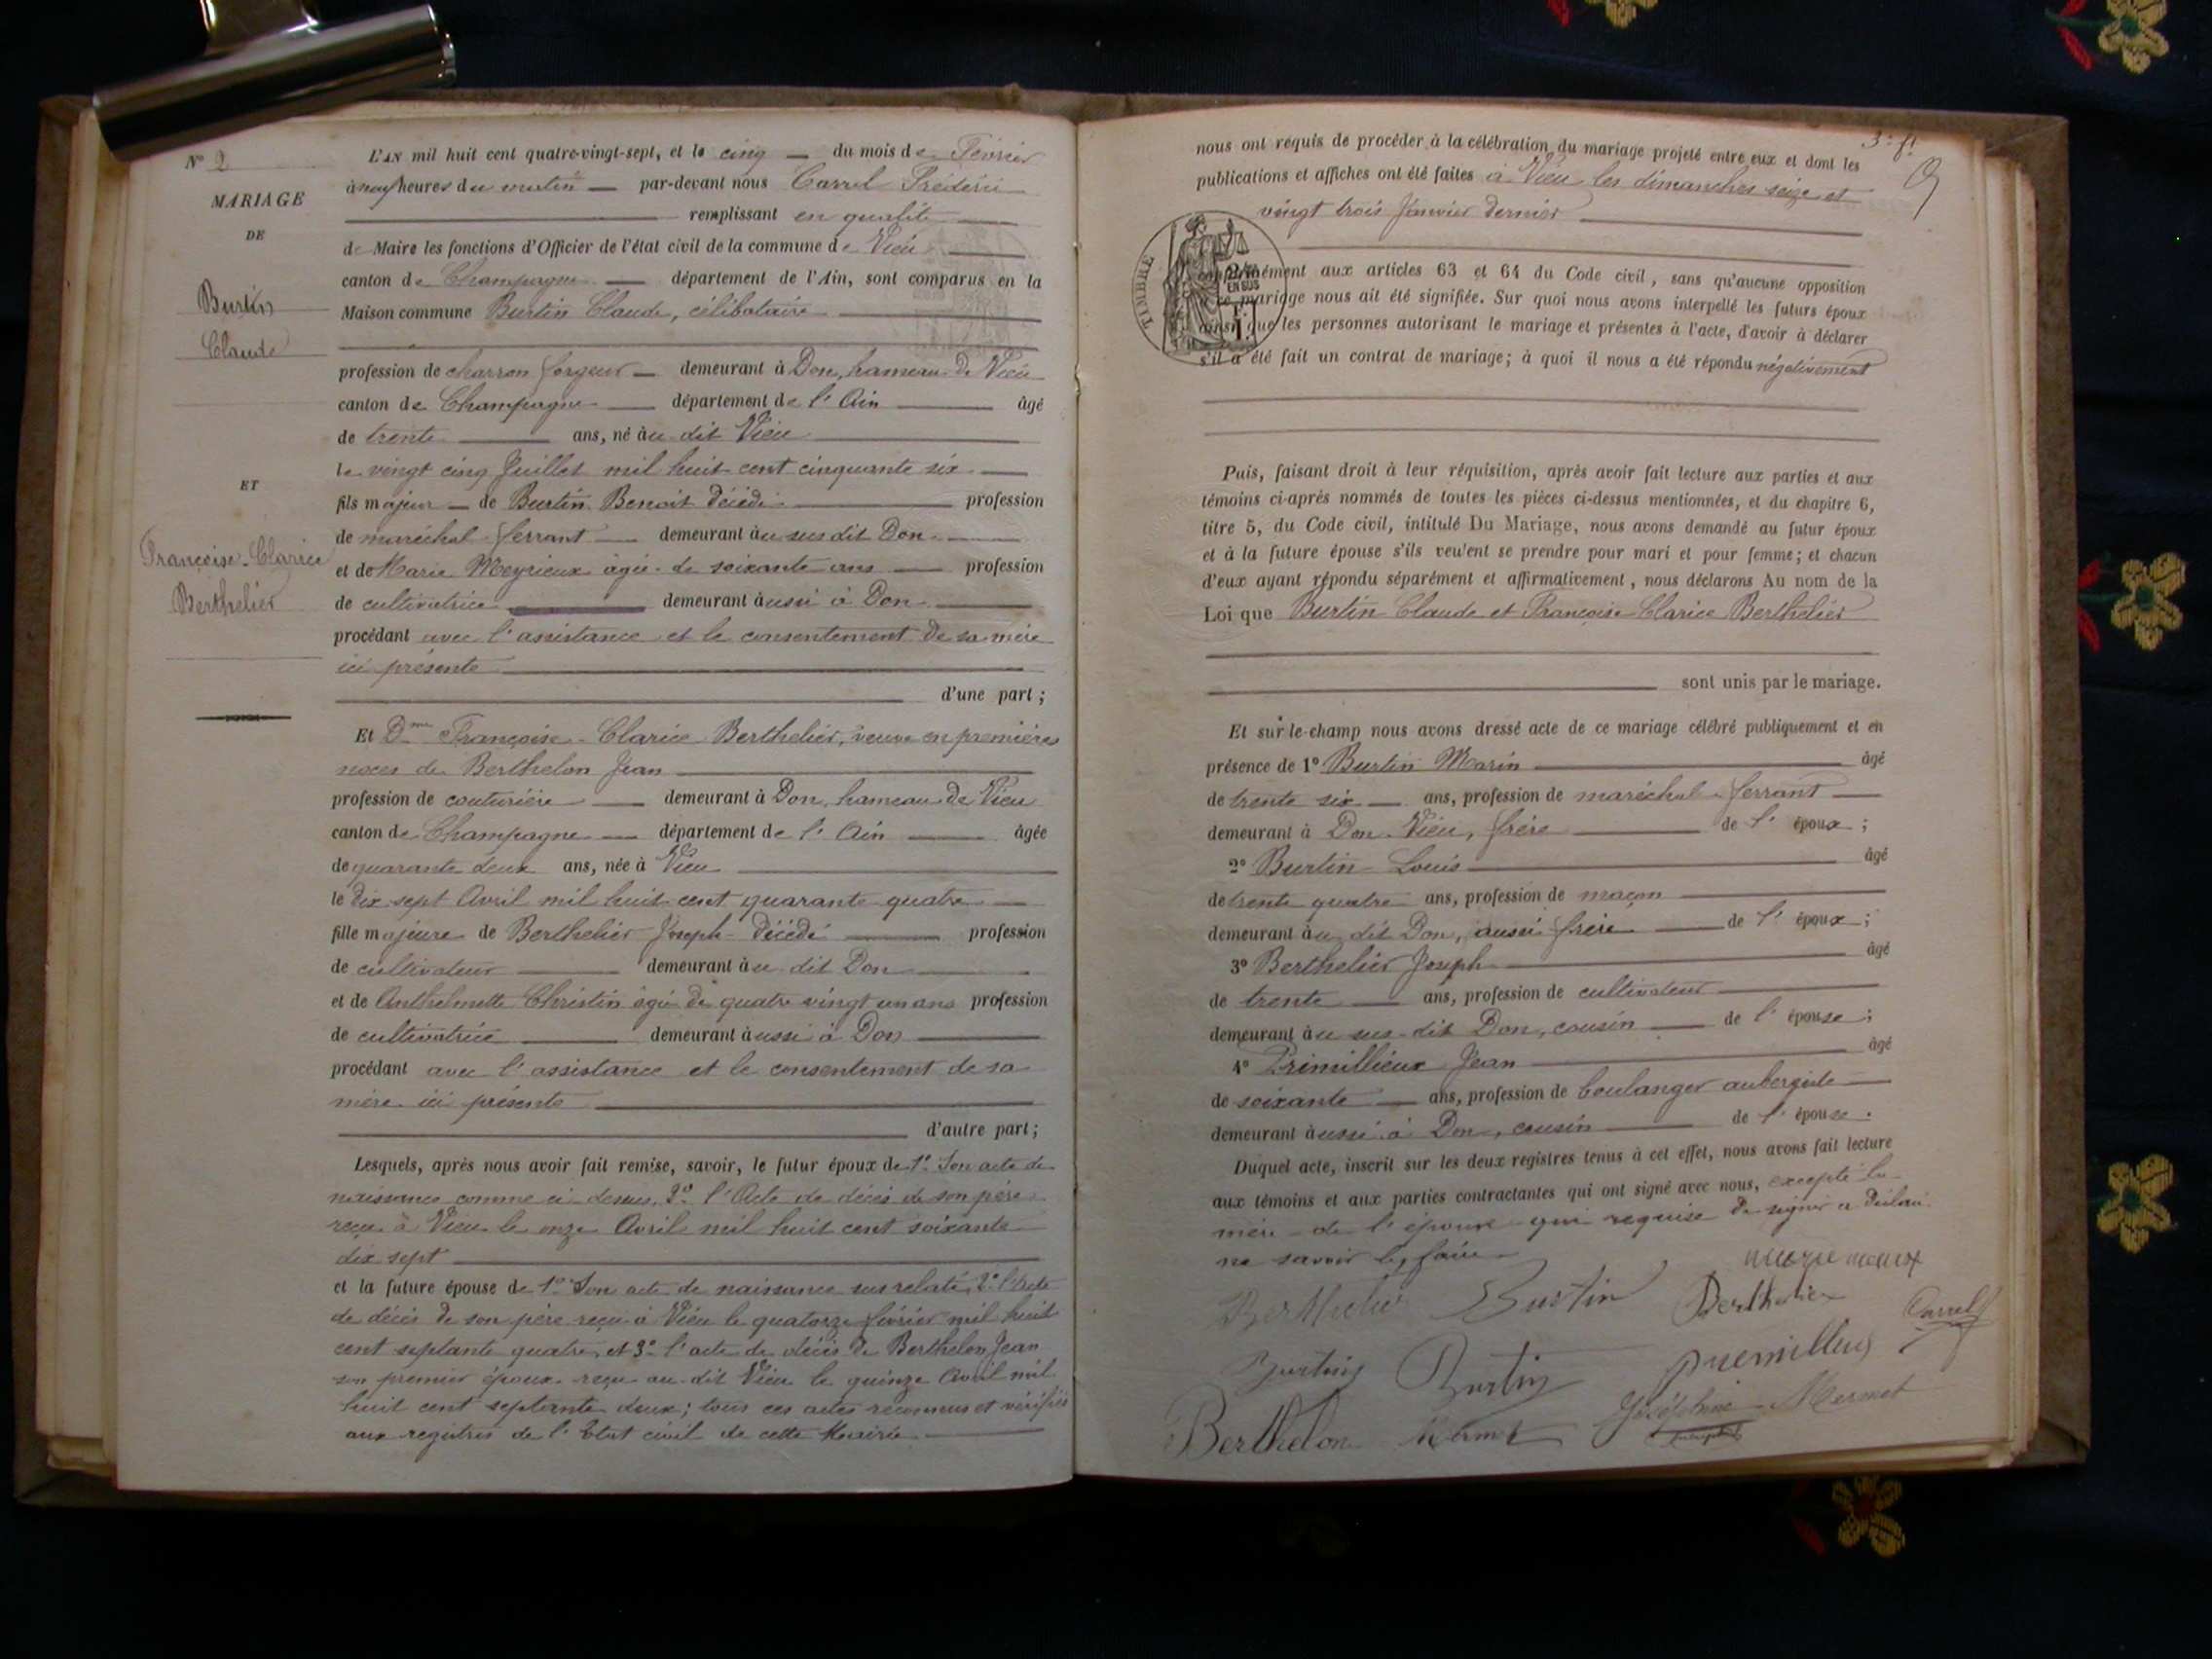 N° 2
MARIAGE
DE
Burtin
Claude
ET
Françoise-Clarice
Berthelier
L'AN mil huit cent quatre-vingt-sept, et le cinq du mois de Février
à neuf heures du matin par-devant nous Carrel Frédéric
remplissant en qualité
de Maire les fonctions d'Officier de l'état civil de la commune de Vieu
canton de Champagne département de l'Ain, sont comparus en la
Maison commune Burtin Claude, célibataire
profession de charron forgeur demeurant à Don, hameau de Vieu
canton de Champagne département de l'Ain âgé
de trente ans, né àu dit Vieu
le vingt cinq Juillet mil huit cent cinquante six
fils majeur de Burtin Benoit décédé profession
de maréchal ferrant demeurant àu sus dit Don
et de Marie Meyrieux âgée de soixante ans profession
de cultivatrice demeurant àussi à Don
procédant avec l'assistance et le consentement de sa mère
ici présente
d'une part ;
Et Dme Françoise-Clarice Berthelier, veuve en premières
noces de Berthelon Jean
profession de couturière demeurant à Don, hameau de Vieu
canton de Champagne département de l'Ain âgée
de quarante deux ans, née à Vieu
le dix sept Avril mil huit cent quarante quatre
fille majeure de Berthelier Joseph décédé profession
de cultivateur demeurant àu dit Don
et de Anthelmette Christin âgée de quatre vingt un ans profession
de cultivatrice demeurant àussi à Don
procédant avec l'assistance et le consentement de sa
mère ici présente
d'autre part ;
Lesquels, après nous avoir fait remise, savoir, le futur époux de 1° Son acte de
naissance comme ci dessus, 2° l'Acte de décès de son père
reçu à Vieu le onze Avril mil huit cent soixante
dix sept
et la future épouse de 1° Son acte de naissance susrelaté, 2° l'Acte
de décès de son père reçu à Vieu le quatorze février mil huit
cent septante quatre, et 3° l'acte de décès de Berthelon Jean
son premier époux reçu au dit Vieu le quinze Avril mil
huit cent septante deux ; tous ces actes reconnus et vérifiés
aux registres de l'Etat civil de cette Mairie
3e ft
nous ont requis de procéder à la célébration du mariage projeté entre eux et dont les
publications et affiches ont été faites à Vieu les dimanches seize et
vingt trois Janvier dernier
TIMBRE
2/10 EN SUS
conformément aux articles 63 et 64 du Code civil, sans qu'aucune opposition
à ce mariage nous ait été signifiée. Sur quoi nous avons interpellé les futurs époux
ainsi que les personnes autorisant le mariage et présentes à l'acte, d'avoir à déclarer
s'il a été fait un contrat de mariage ; à quoi il nous a été répondu négativement
Puis, faisant droit à leur réquisition, après avoir fait lecture aux parties et aux
témoins ci-après nommés de toutes les pièces ci-dessus mentionnées, et du chapitre 6,
titre 5, du Code civil, intitulé Du Mariage, nous avons demandé au futur époux
et à la future épouse s'ils veulent se prendre pour mari et pour femme ; et chacun
d'eux ayant répondu séparément et affirmativement, nous déclarons Au nom de la
Loi que Burtin Claude et Françoise Clarice Berthelier
sont unis par le mariage.
Et sur-le-champ nous avons dressé acte de ce mariage célébré publiquement et en
présence de 1° Burtin Marin âgé
de trente six ans, profession de maréchal ferrant
demeurant à Don-Vieu, frère de l'époux ;
2° Burtin Louis âgé
de trente quatre ans, profession de maçon
demeurant àu dit Don, aussi frère de l'époux ;
3° Berthelier Joseph âgé
de trente ans, profession de cultivateur
demeurant àu sus-dit Don, cousin de l'épouse ;
4° Primillieux Jean âgé
de soixante ans, profession de boulanger aubergiste
demeurant àussi à Don, cousin de l'épouse.
Duquel acte, inscrit sur les deux registres tenus à cet effet, nous avons fait lecture
aux témoins et aux parties contractantes qui ont signé avec nous, excepté la
mère de l'époux qui requise de signer a déclaré
ne savoir le faire
Berthelier Burtin Berthelier Carrel
Burtin Burtin
Berthelon Mermet Joséphine Mermet